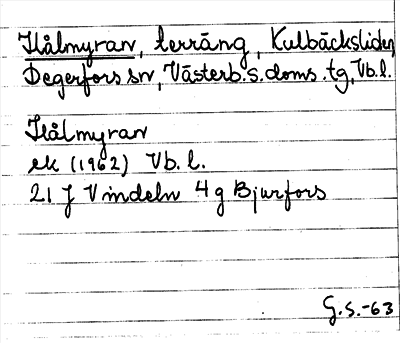 Hålmyran, terräng, Kulbäcksliden
Degerfors sn, Västerb.s.doms.tg, Vb.l.
Hålmyran
ek (1962) Vb.l.
21 J Vindeln 4g Bjurfors
G.S.-63